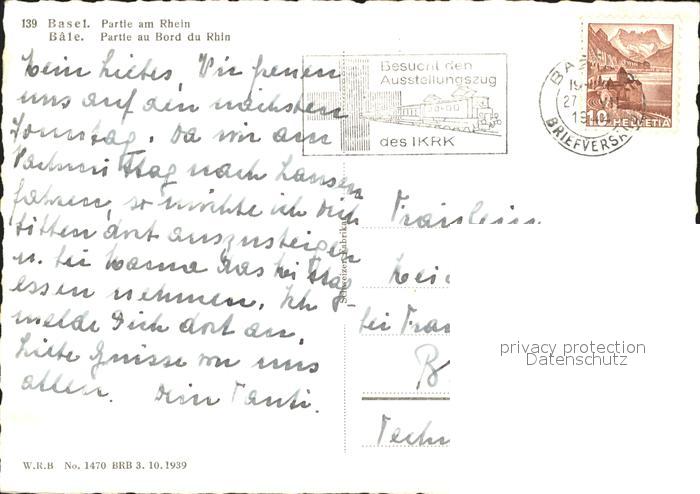 139 Basel. Partie am Rhein
Bâle. Partie au Bord du Rhin
Mein Liebes, Wir freuen
uns auf den nächsten
Sonntag. Da wir am
nach
fahren, so möchte ich Dich
bitten dort auszusteigen
u. bei Mama das
essen nehmen. Ich
melde Dich dort an,
Liebe Grüsse von uns
allen. Dein Tanti.
Besucht den
Ausstellungszug
des IKRK
BA
27 VI
BRIEFVERSAND
10 HELVETIA
Schweizer Fabrikat
Fräulein
bei
B
Techn
privacy protection
Datenschutz
W.R.B No. 1470 BRB 3. 10. 1939